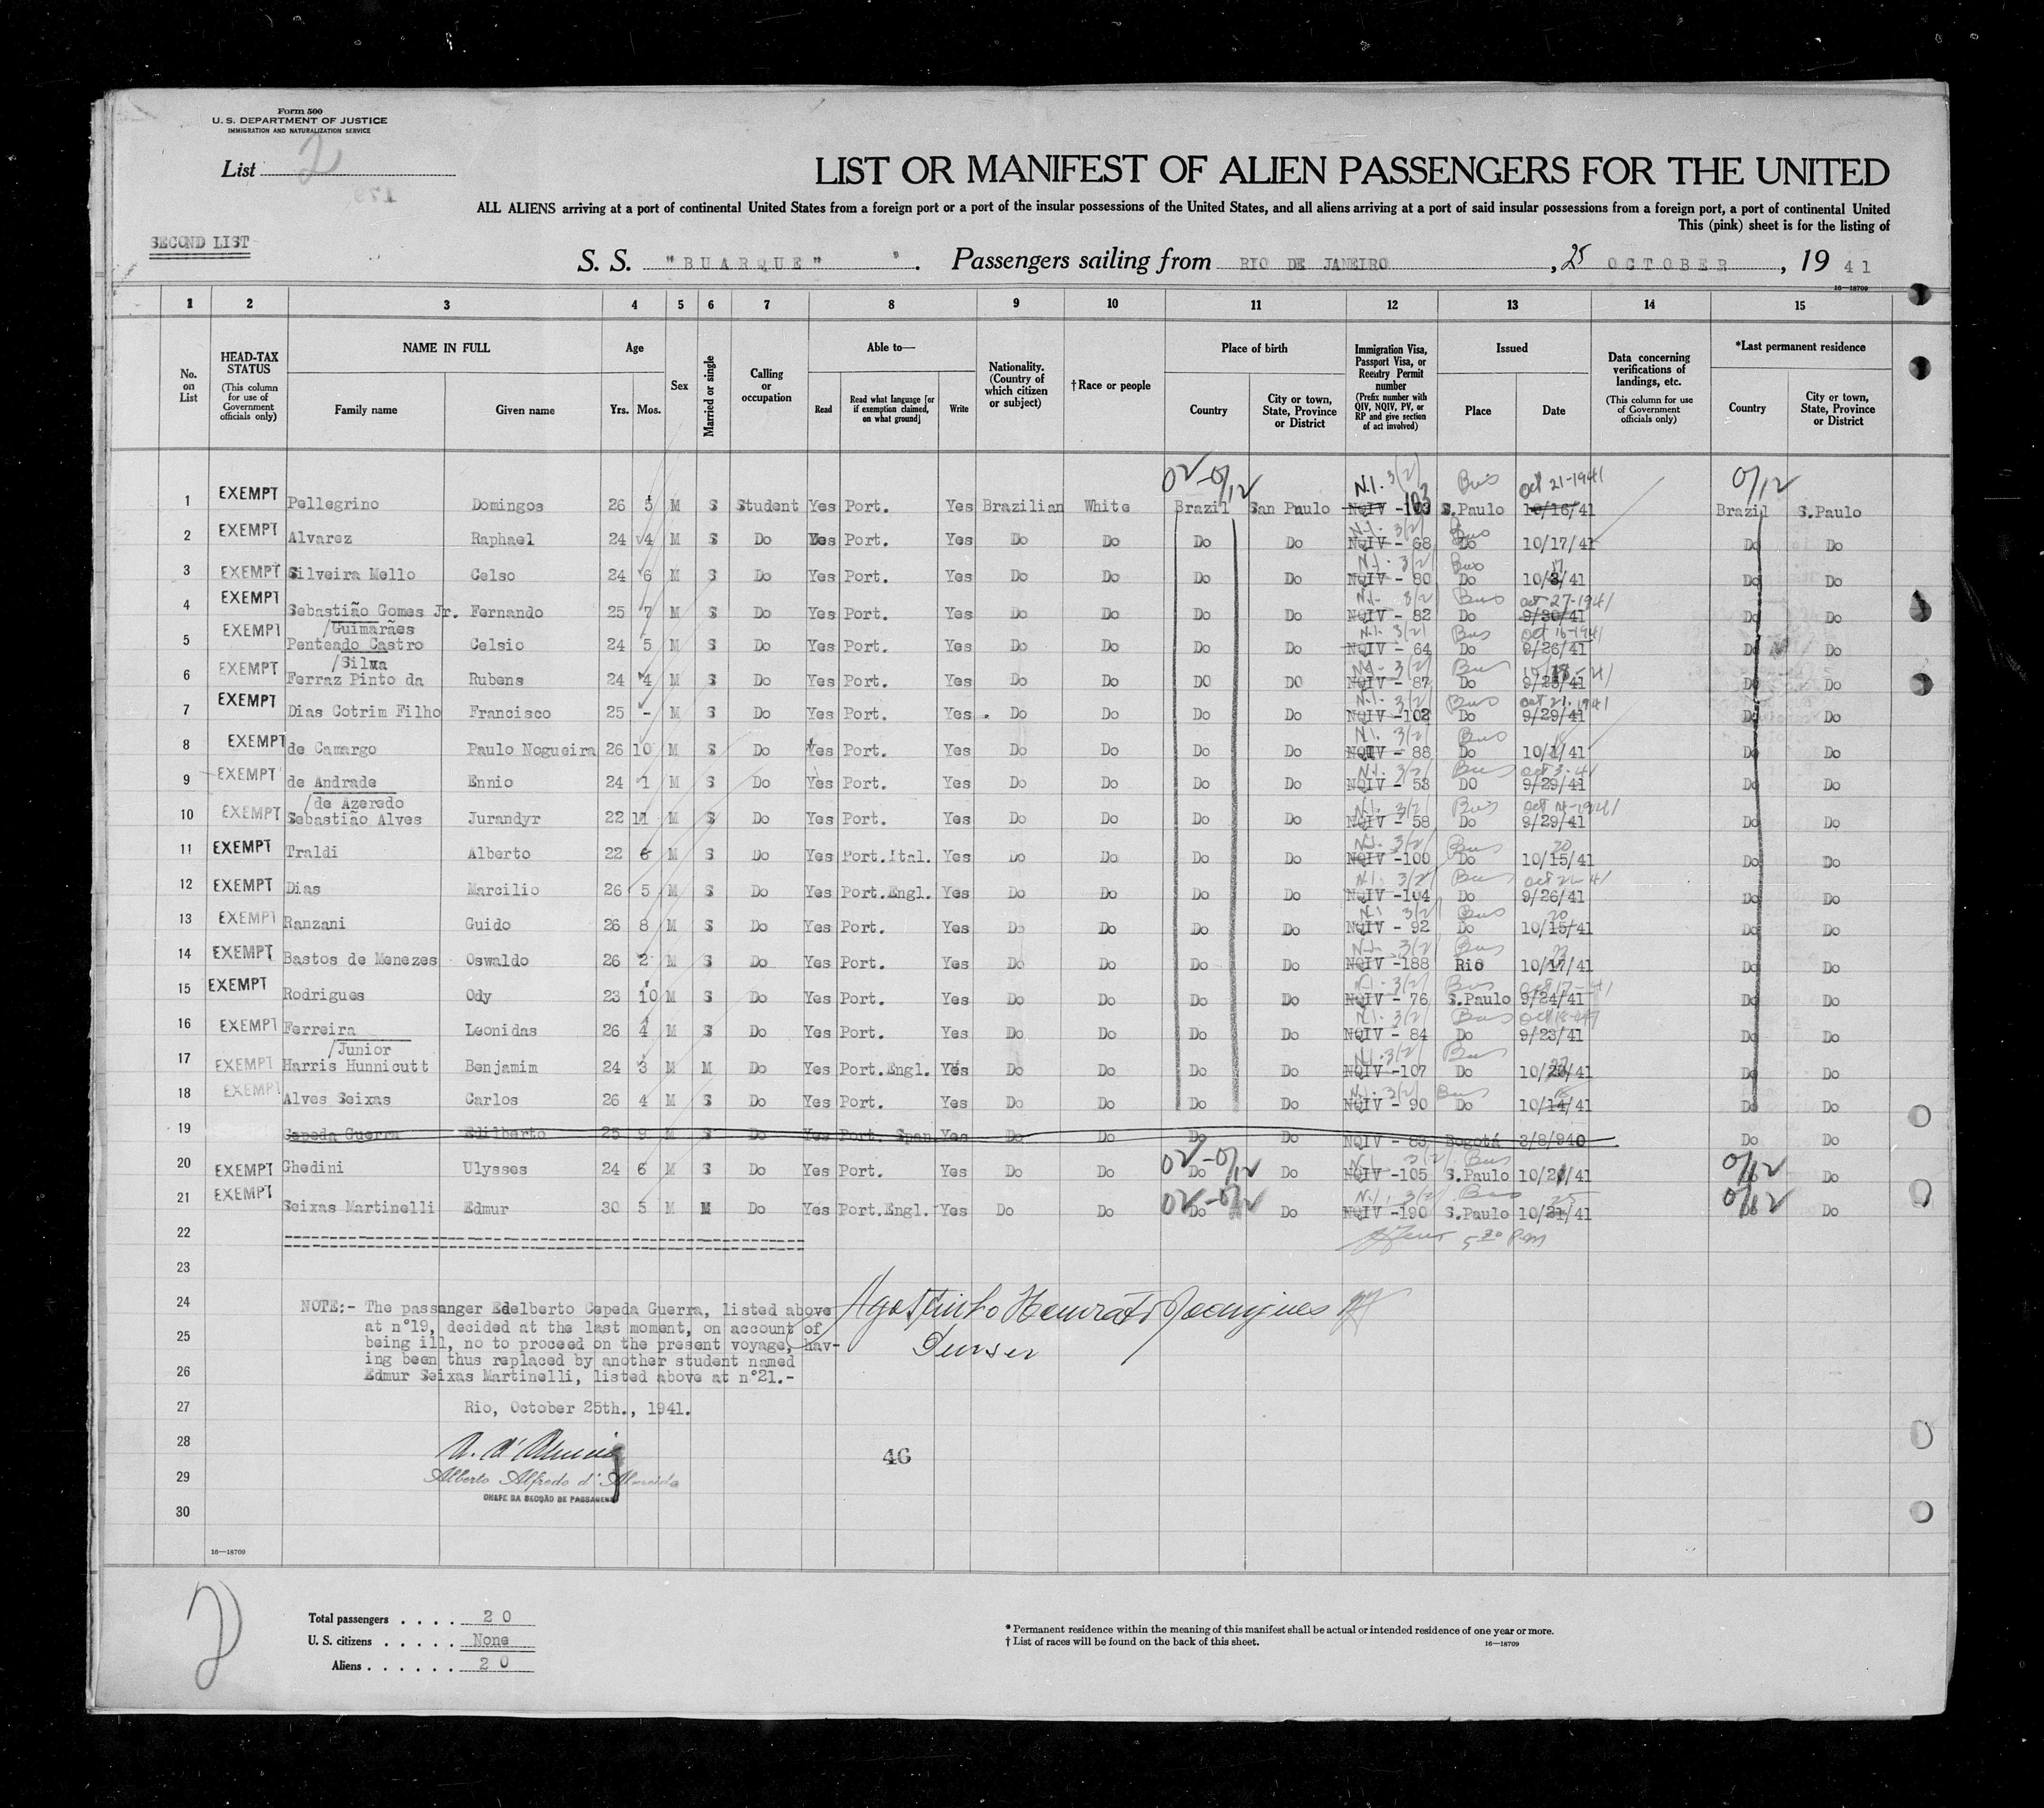 Form 500
U. S. DEPARTMENT OF JUSTICE
IMMIGRATION AND NATURALIZATION SERVICE
List 2
LIST OR MANIFEST OF ALIEN PASSENGERS FOR THE UNITED
ALL ALIENS arriving at a port of continental United States from a foreign port or a port of the insular possessions of the United States, and all aliens arriving at a port of said insular possessions from a foreign port, a port of continental United
This (pink) sheet is for the listing of
SECOND LIST
S. S. "BUARQUE" . Passengers sailing from RIO DE JANEIRO , 25 OCTOBER , 19 41
16—18709
1 2 3 4 5 6 7 8 9 10 11 12 13 14 15
No. on List
HEAD-TAX STATUS (This column for use of Government officials only)
NAME IN FULL Family name Given name
Age Yrs. Mos.
Sex
Married or single
Calling or occupation
Able to— Read Read what language [or if exemption claimed, on what ground] Write
Nationality. (Country of which citizen or subject)
† Race or people
Place of birth Country City or town, State, Province or District
Immigration Visa, Passport Visa, or Reentry Permit number (Prefix number with QIV, NQIV, PV, or RP and give section of act involved)
Issued Place Date
Data concerning verifications of landings, etc. (This column for use of Government officials only)
*Last permanent residence Country City or town, State, Province or District
02-0/12 N.I. 3(2) Bus Oct 21-1941 0/12
1 EXEMPT Pellegrino Domingos 26 5 M S Student Yes Port. Yes Brazilian White Brazil San Paulo NQIV -103 S.Paulo 10/16/41 Brazil S.Paulo
N.I. 3(2) Bus
2 EXEMPT Alvarez Raphael 24 4 M S Do Yes Port. Yes Do Do Do Do NQIV - 68 Do 10/17/41 Do Do
N.I. 3(2) Bus
3 EXEMPT Silveira Mello Celso 24 6 M S Do Yes Port. Yes Do Do Do Do NQIV - 80 Do 10/ /41 Do Do
N.I. 3(2) Bus Oct 27-1941
4 EXEMPT Sebastião Gomes Jr. Fernando 25 7 M S Do Yes Port. Yes Do Do Do Do NQIV - 82 Do 9/30/41 Do Do
/Guimarães N.I. 3(2) Bus Oct 16-1941
5 EXEMPT Penteado Castro Celsio 24 5 M S Do Yes Port. Yes Do Do Do Do NQIV - 64 Do 9/26/41 Do Do
/Silva N.I. 3(2) Bus
6 EXEMPT Ferraz Pinto da Rubens 24 4 M S Do Yes Port. Yes Do Do DO DO NQIV - 87 Do 9/25/41 Do Do
N.I. 3(2) Bus Oct 21, 1941
7 EXEMPT Dias Cotrim Filho Francisco 25 - M S Do Yes Port. Yes Do Do Do Do NQIV -102 Do 9/29/41 Do Do
N.I. 3(2) Bus
8 EXEMPT de Camargo Paulo Nogueira 26 10 M S Do Yes Port. Yes Do Do Do Do NQIV - 88 Do 10/1/41 Do Do
N.I. 3(2) Bus Oct 3-41
9 EXEMPT de Andrade Ennio 24 1 M S Do Yes Port. Yes Do Do Do Do NQIV - 53 DO 9/29/41 Do Do
/de Azeredo N.I. 3(2) Bus Oct 14-1941
10 EXEMPT Sebastião Alves Jurandyr 22 11 M S Do Yes Port. Yes Do Do Do Do NQIV - 58 Do 9/29/41 Do Do
N.I. 3(2) Bus 20
11 EXEMPT Traldi Alberto 22 6 M S Do Yes Port.Ital. Yes Do Do Do Do NQIV -100 Do 10/15/41 Do Do
N.I. 3(2) Bus Oct 22-41
12 EXEMPT Dias Marcilio 26 5 M S Do Yes Port.Engl. Yes Do Do Do Do NQIV -104 Do 9/26/41 Do Do
N.I. 3(2) Bus 20
13 EXEMPT Ranzani Guido 26 8 M S Do Yes Port. Yes Do Do Do Do NQIV - 92 Do 10/15/41 Do Do
N.I. 3(2) Bus
14 EXEMPT Bastos de Menezes Oswaldo 26 2 M S Do Yes Port. Yes Do Do Do Do NQIV -188 Rio 10/17/41 Do Do
N.I. 3(2) Bus Oct 17-41
15 EXEMPT Rodrigues Ody 23 10 M S Do Yes Port. Yes Do Do Do Do NQIV - 76 S.Paulo 9/24/41 Do Do
N.I. 3(2) Bus
16 EXEMPT Ferreira Leonidas 26 4 M S Do Yes Port. Yes Do Do Do Do NQIV - 84 Do 9/23/41 Do Do
/Junior N.I. 3(2) Bus
17 EXEMPT Harris Hunnicutt Benjamim 24 3 M M Do Yes Port.Engl. Yes Do Do Do Do NQIV -107 Do 10/ /41 Do Do
N.I. 3(2) Bus
18 EXEMPT Alves Seixas Carlos 26 4 M S Do Yes Port. Yes Do Do Do Do NQIV - 90 Do 10/14/41 Do Do
19 Cepeda Guerra Edilberto 25 9 M S Do Yes Port. Span. Yes Do Do Do Do NQIV - 83 Bogotá 3/8/940 Do Do
02-0/12 N.I. 3(2) Bus 0/12
20 EXEMPT Ghedini Ulysses 24 6 M S Do Yes Port. Yes Do Do Do Do NQIV -105 S.Paulo 10/21/41 Do Do
02-0/12 N.I. 3(2) Bus 25 0/12
21 EXEMPT Seixas Martinelli Edmur 30 5 M M Do Yes Port.Engl. Yes Do Do Do Do NQIV -190 S.Paulo 10/21/41 Do Do
22 5 30 P.m
23
24 NOTE:- The passanger Edelberto Cepeda Guerra, listed above
at n°19, decided at the last moment, on account of
25 being ill, no to proceed on the present voyage, hav-
ing been thus replaced by another student named
26 Edmur Seixas Martinelli, listed above at n°21.-
Purser
27 Rio, October 25th., 1941.
28 A. d'Almeida
46
29 Alberto Alfredo d'Almeida
CHEFE DA SECÇÃO DE PASSAGENS
30
16—18709
2
Total passengers . . . . 20
U. S. citizens . . . . . None
Aliens . . . . . . 20
* Permanent residence within the meaning of this manifest shall be actual or intended residence of one year or more.
† List of races will be found on the back of this sheet.
16—18709